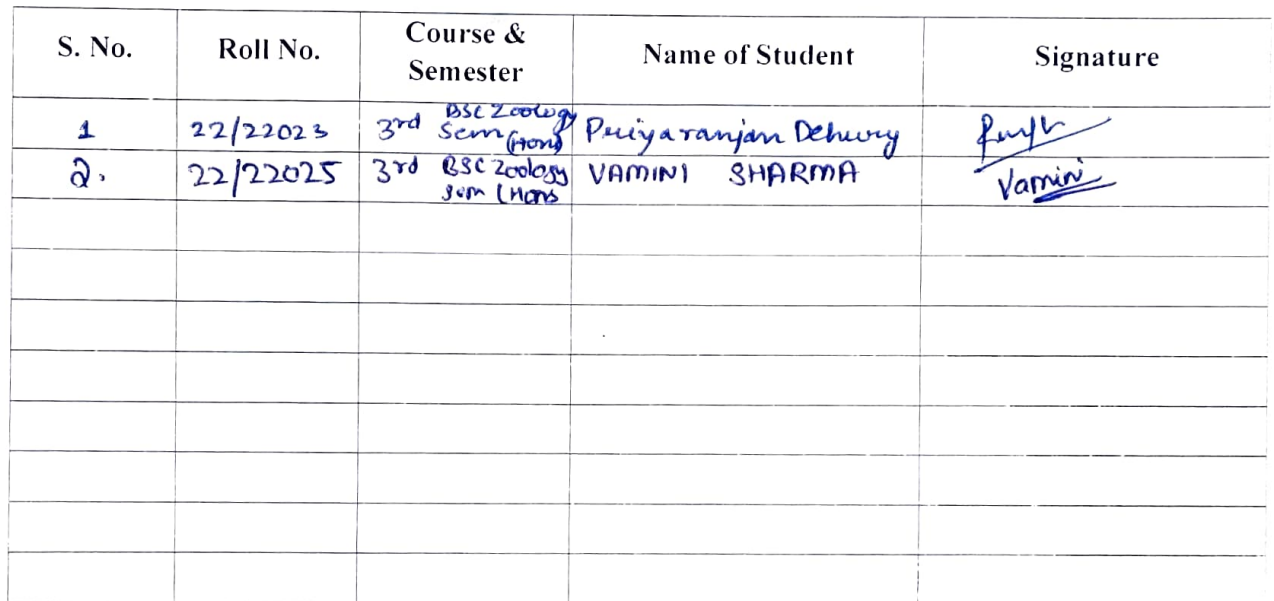 S. No. Roll No. Course & Semester Name of Student Signature
1 22/22023 3rd Sem BSC Zoology (Hons) Priyaranjan Dehury
2. 22/22025 3rd sem BSC Zoology (Hons VAMINI SHARMA Vamini